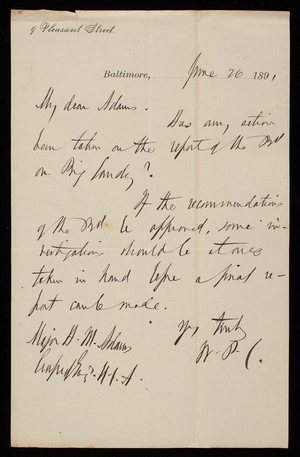 9 Pleasant Street.
Baltimore, June 26 1891
My dear Adams.
Has any action
been taken on the report of the Bd
on Big Sandy?.
If the recommendations
of the Bd. be approved, some in-
vestigations should be at once
taken in hand before a final re-
port can be made.
Yrs truly
W. P. C.
Major H. M. Adams
Corps of Engs. U.S.A.